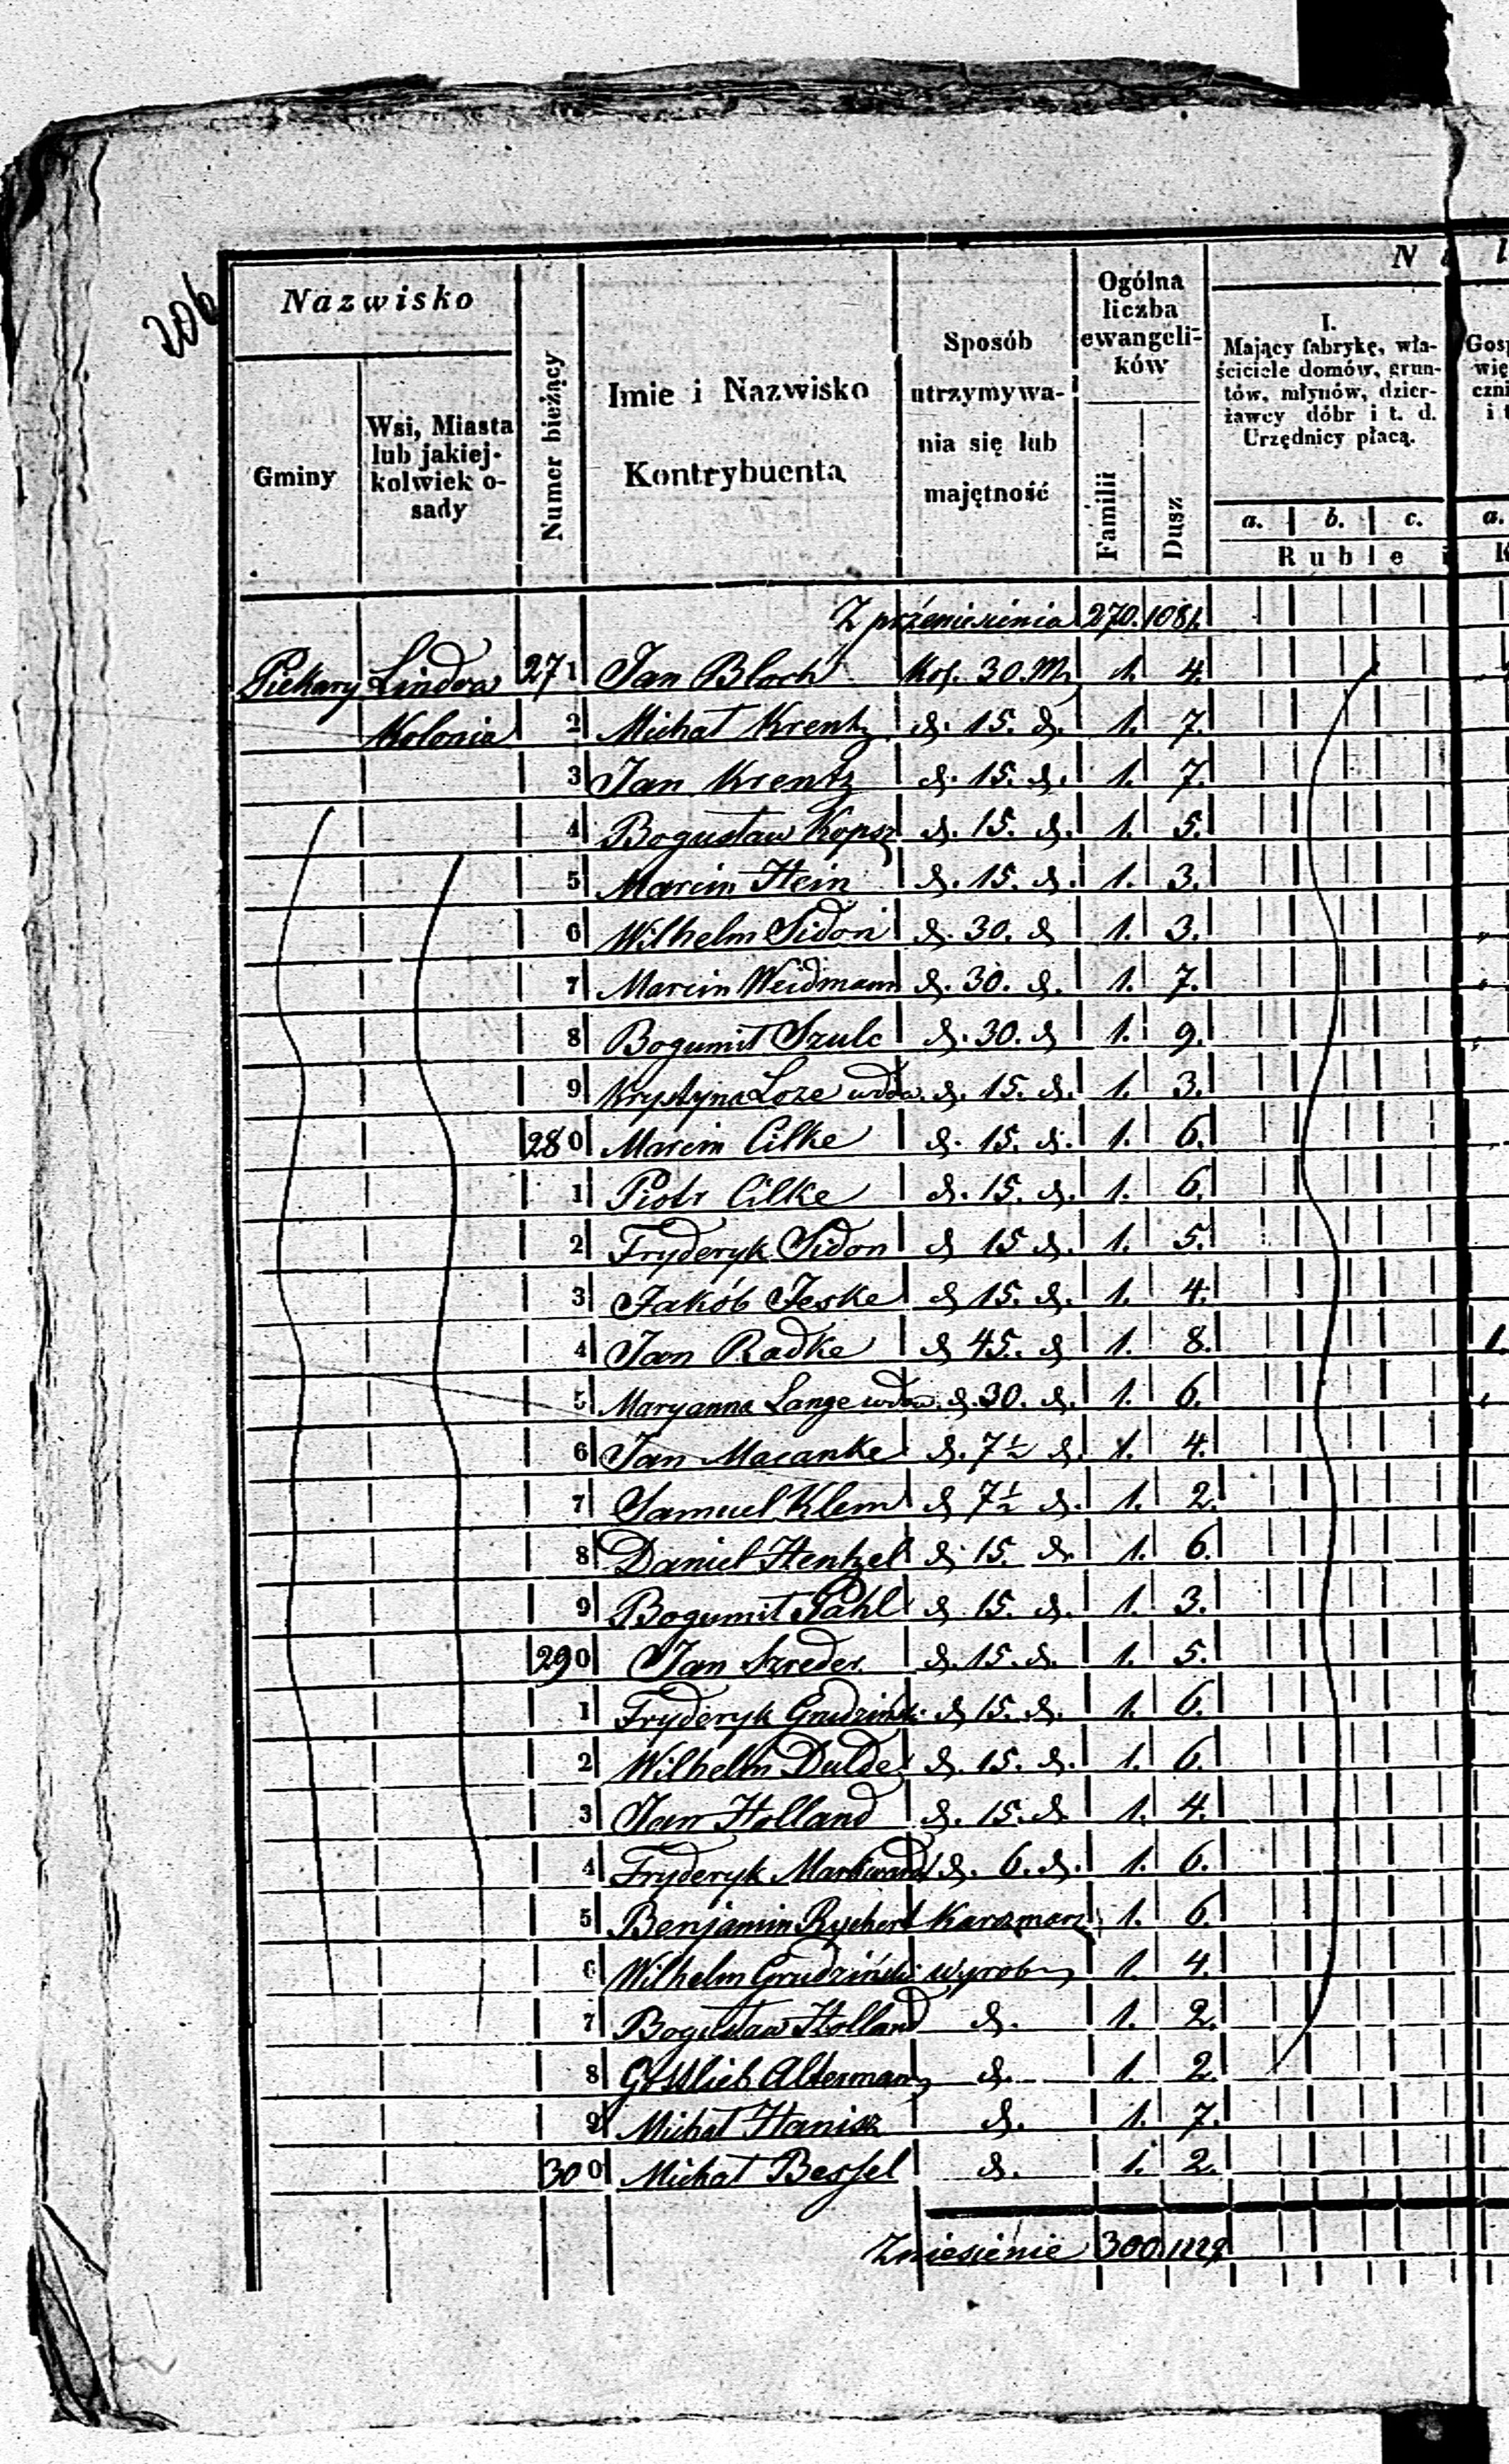 206
Nazwisko
Gminy
Wsi, Miasta
lub jakiej-
kolwiek o-
sady
Numer bieżący
Imie i Nazwisko
Kontrybuenta
Sposób
utrzymywa-
nia się lub
majętność
Ogólna
liczba
ewangeli-
ków
Familii
Dusz
N
I.
Mający fabrykę, wła-
ściciele domów, grun-
tów, młynów, dzier-
żawcy dóbr i t. d.
Urzędnicy płacą.
a. b. c.
Ruble
Z przeniesienia 270. 1081.
Piekary Lindów 271 Jan Bloch Kol. 30. M. 1. 4.
Kolonia 2 Michał Krentz d. 15. d. 1. 7.
3 Jan Krentz d. 15. d. 1. 7.
4 Bogusław Kopsz d. 15. d. 1. 5.
5 Marcin Hein d. 15. d. 1. 3.
6 Wilhelm Sidon d. 30. d 1. 3.
7 Marcin Weidmann d. 30. d. 1. 7.
8 Bogumił Szulc d. 30. d 1. 9.
9 Krystyna Loze wdowa d. 15. d. 1. 3.
280 Marcin Cilke d. 15. d. 1. 6.
1 Piotr Cilke d. 15. d. 1. 6.
2 Fryderyk Sidon d 15 d. 1. 5.
3 Jakób Jeske d 15. d. 1. 4.
4 Jan Radke d 45. d 1. 8. 1.
5 Maryanna Lange wdowa d. 30. d. 1. 6.
6 Jan Macanke d. 7½ d. 1. 4.
7 Samuel Klem d 7½ d. 1. 2.
8 Daniel Hentzel d. 15 d. 1. 6.
9 Bogumił Pahl d 15. d. 1. 3.
290 Jan Szreder d. 15. d. 1. 5.
1 Fryderyk Grudziński d 15. d. 1. 6.
2 Wilhelm Dulde d. 15. d. 1. 6.
3 Jan Holland d. 15. d 1. 4.
4 Fryderyk Markward d. 6. d. 1. 6.
5 Benjamin Rychert Karczmarz 1. 6.
6 Wilhelm Grudziński wyrobn 1. 4.
7 Bogusław Holland d. 1. 2.
8 Gottlieb Alterman d. 1. 2
9 Michał Hanisz d. 1. 7.
300 Michał Bessel d. 1. 2.
Zniesienie 300